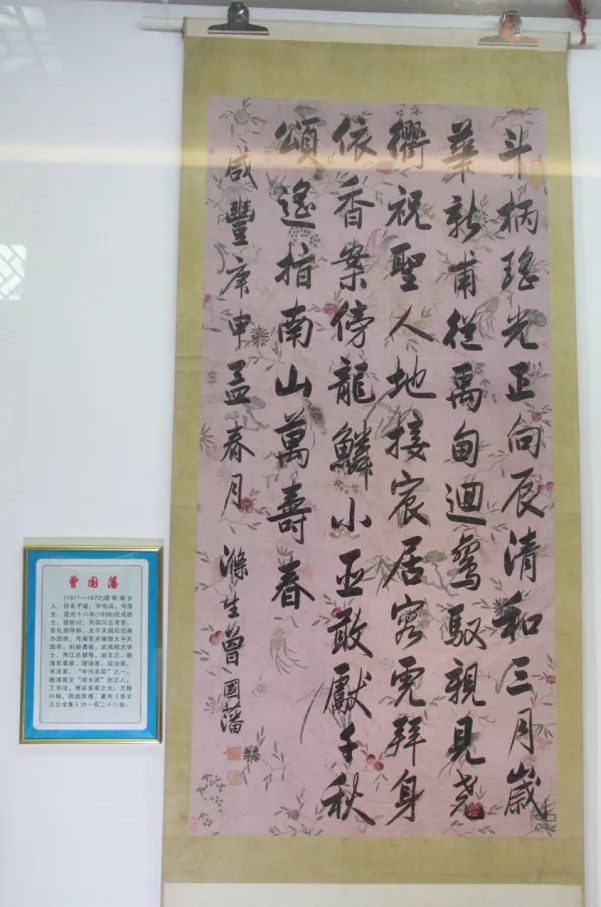 斗柄瑤光正向辰清和三月歲
華新甫從禹甸迴鸞馭親見堯
衢祝聖人地接宸居容虎拜身
依香案傍龍鱗小臣敢獻千秋
頌遙指南山萬壽春
咸豐庚申孟春月 滌生曾國藩
曾国藩
(1811—1872)湖南湘乡
人，初名子城，字伯涵，号涤
生，道光十八年(1838)戊戌进
士，授检讨，充四川正考官，
官礼部侍郎，太平天国后任湘
办团练，号湘军并镇压太平天
国军，封毅勇侯，武英殿大学
士，两江总督等，谥文正，晚
清军事家、理学家、政治家、
书法家，“中兴名臣”之一，
晚清散文“湘乡派”创立人。
工书法，博采多家之长，尤精
行楷，刚挺浑厚，著有《曾文
正公全集》计一百二十八卷。